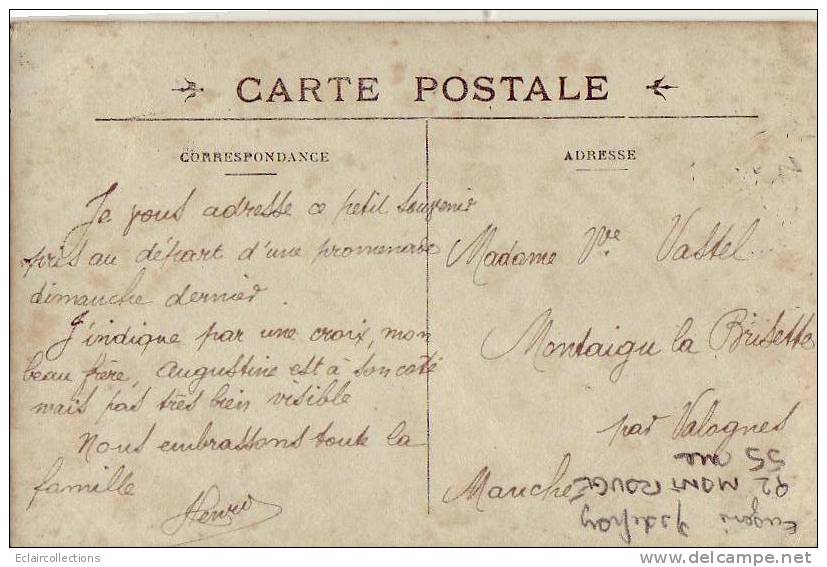 CARTE POSTALE
CORRESPONDANCE
Je vous adresse ce petit souvenir
pris au départ d'une promenade
dimanche dernier.
J'indique par une croix, mon
beau frère, Augustine est à son coté
mais pas très bien visible
Nous embrassons toute la
famille
Henri
ADRESSE
Madame Vve Vastel
Montaigu la Brisette
par Valognes
Manche
55 rue
92 MONTROUGE
Eclaircollections
delcampe.net